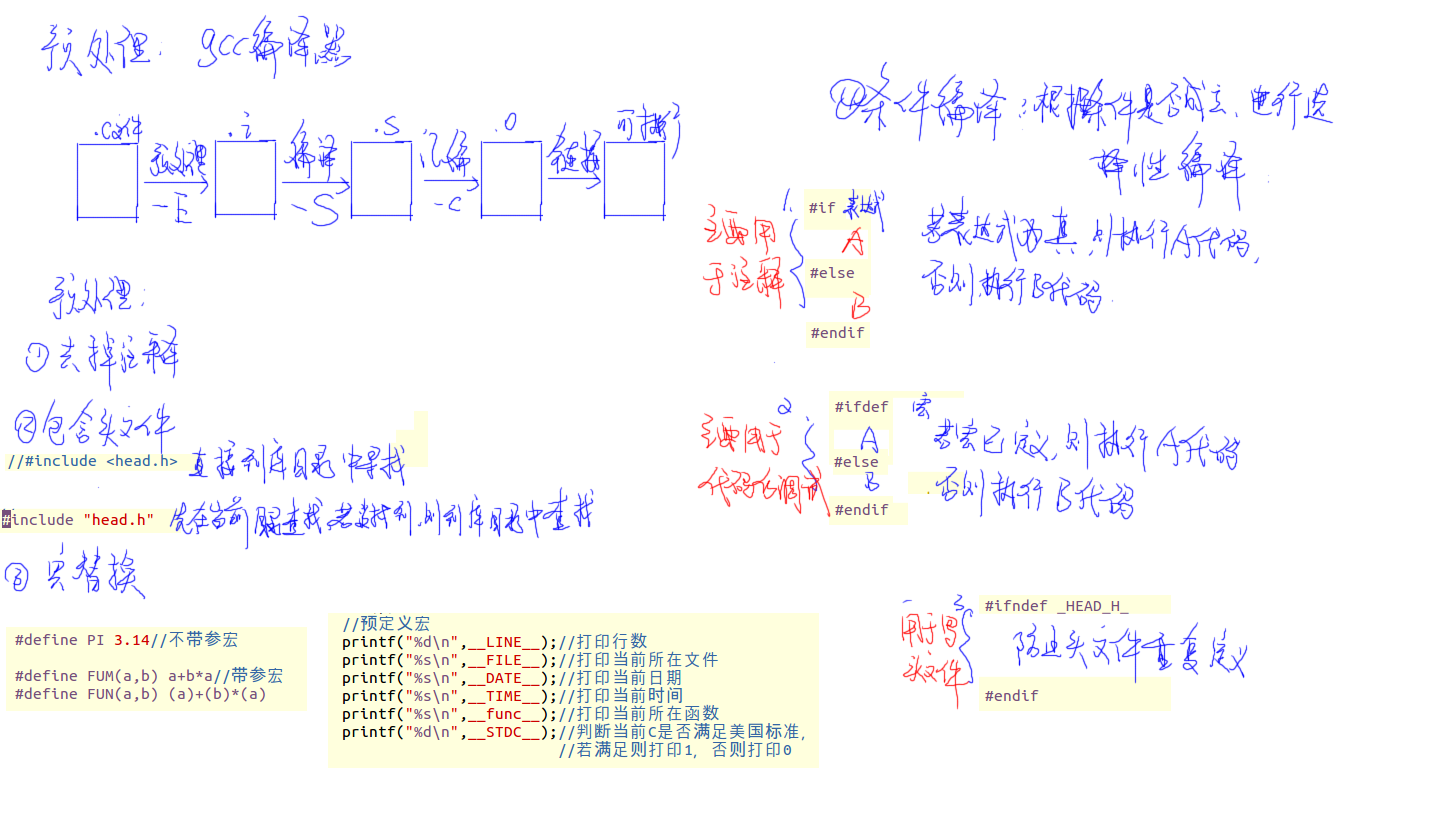 预处理: gcc编译器
.c文件 .i .S .o 可执行
预处理 编译 汇编 链接
-E -S -c
预处理:
①去掉注释
②包含头文件
//#include <head.h> 直接到库目录中寻找
#include "head.h" 先在当前 查找,若 找到,则到库目录中查找
③ 宏替换
#define PI 3.14//不带参宏
#define FUM(a,b) a+b*a//带参宏
#define FUN(a,b) (a)+(b)*(a)
//预定义宏
printf("%d\n",__LINE__);//打印行数
printf("%s\n",__FILE__);//打印当前所在文件
printf("%s\n",__DATE__);//打印当前日期
printf("%s\n",__TIME__);//打印当前时间
printf("%s\n",__func__);//打印当前所在函数
printf("%d\n",__STDC__);//判断当前C是否满足美国标准,
//若满足则打印1, 否则打印0
④条件编译:根据条件是否成立、进行选
择性编译
1. #if 表达式
A
#else
B
#endif
主要用
于注释
若表达式为真,则执行A代码,
否则,执行B代码.
2 #ifdef 宏
A
#else
B
#endif
主要用于
代码化调试
若宏已定义,则执行A代码
否则执行B代码
3 #ifndef _HEAD_H_
防止头文件重复定义
#endif
用于写
头文件